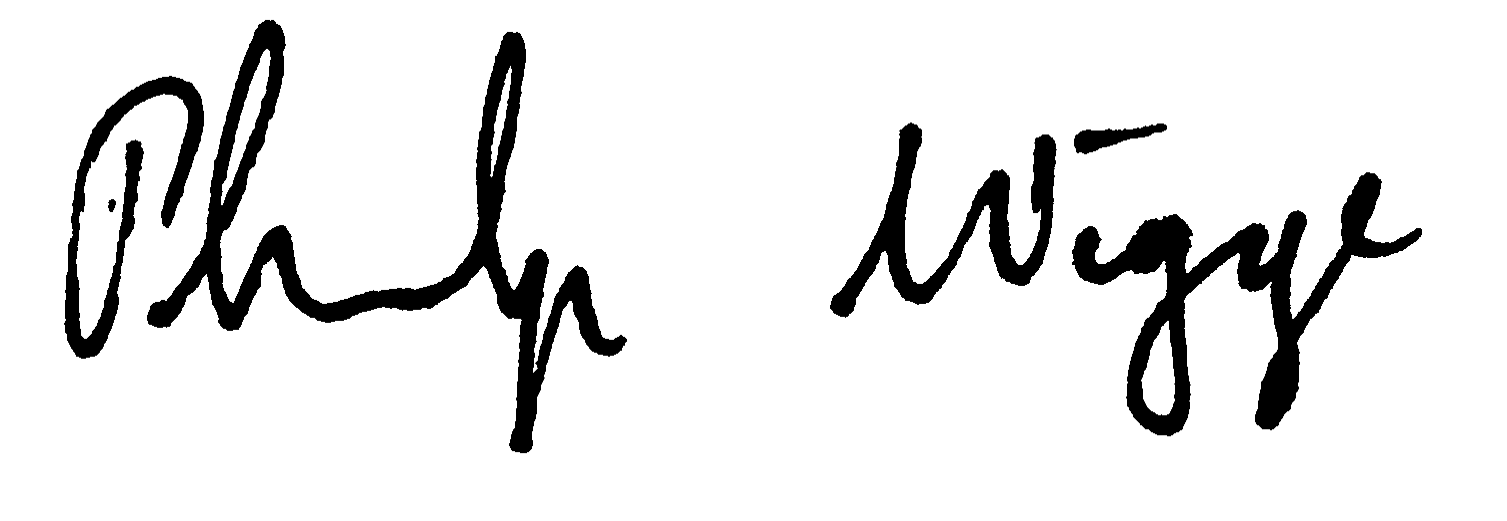 Philip Wigge